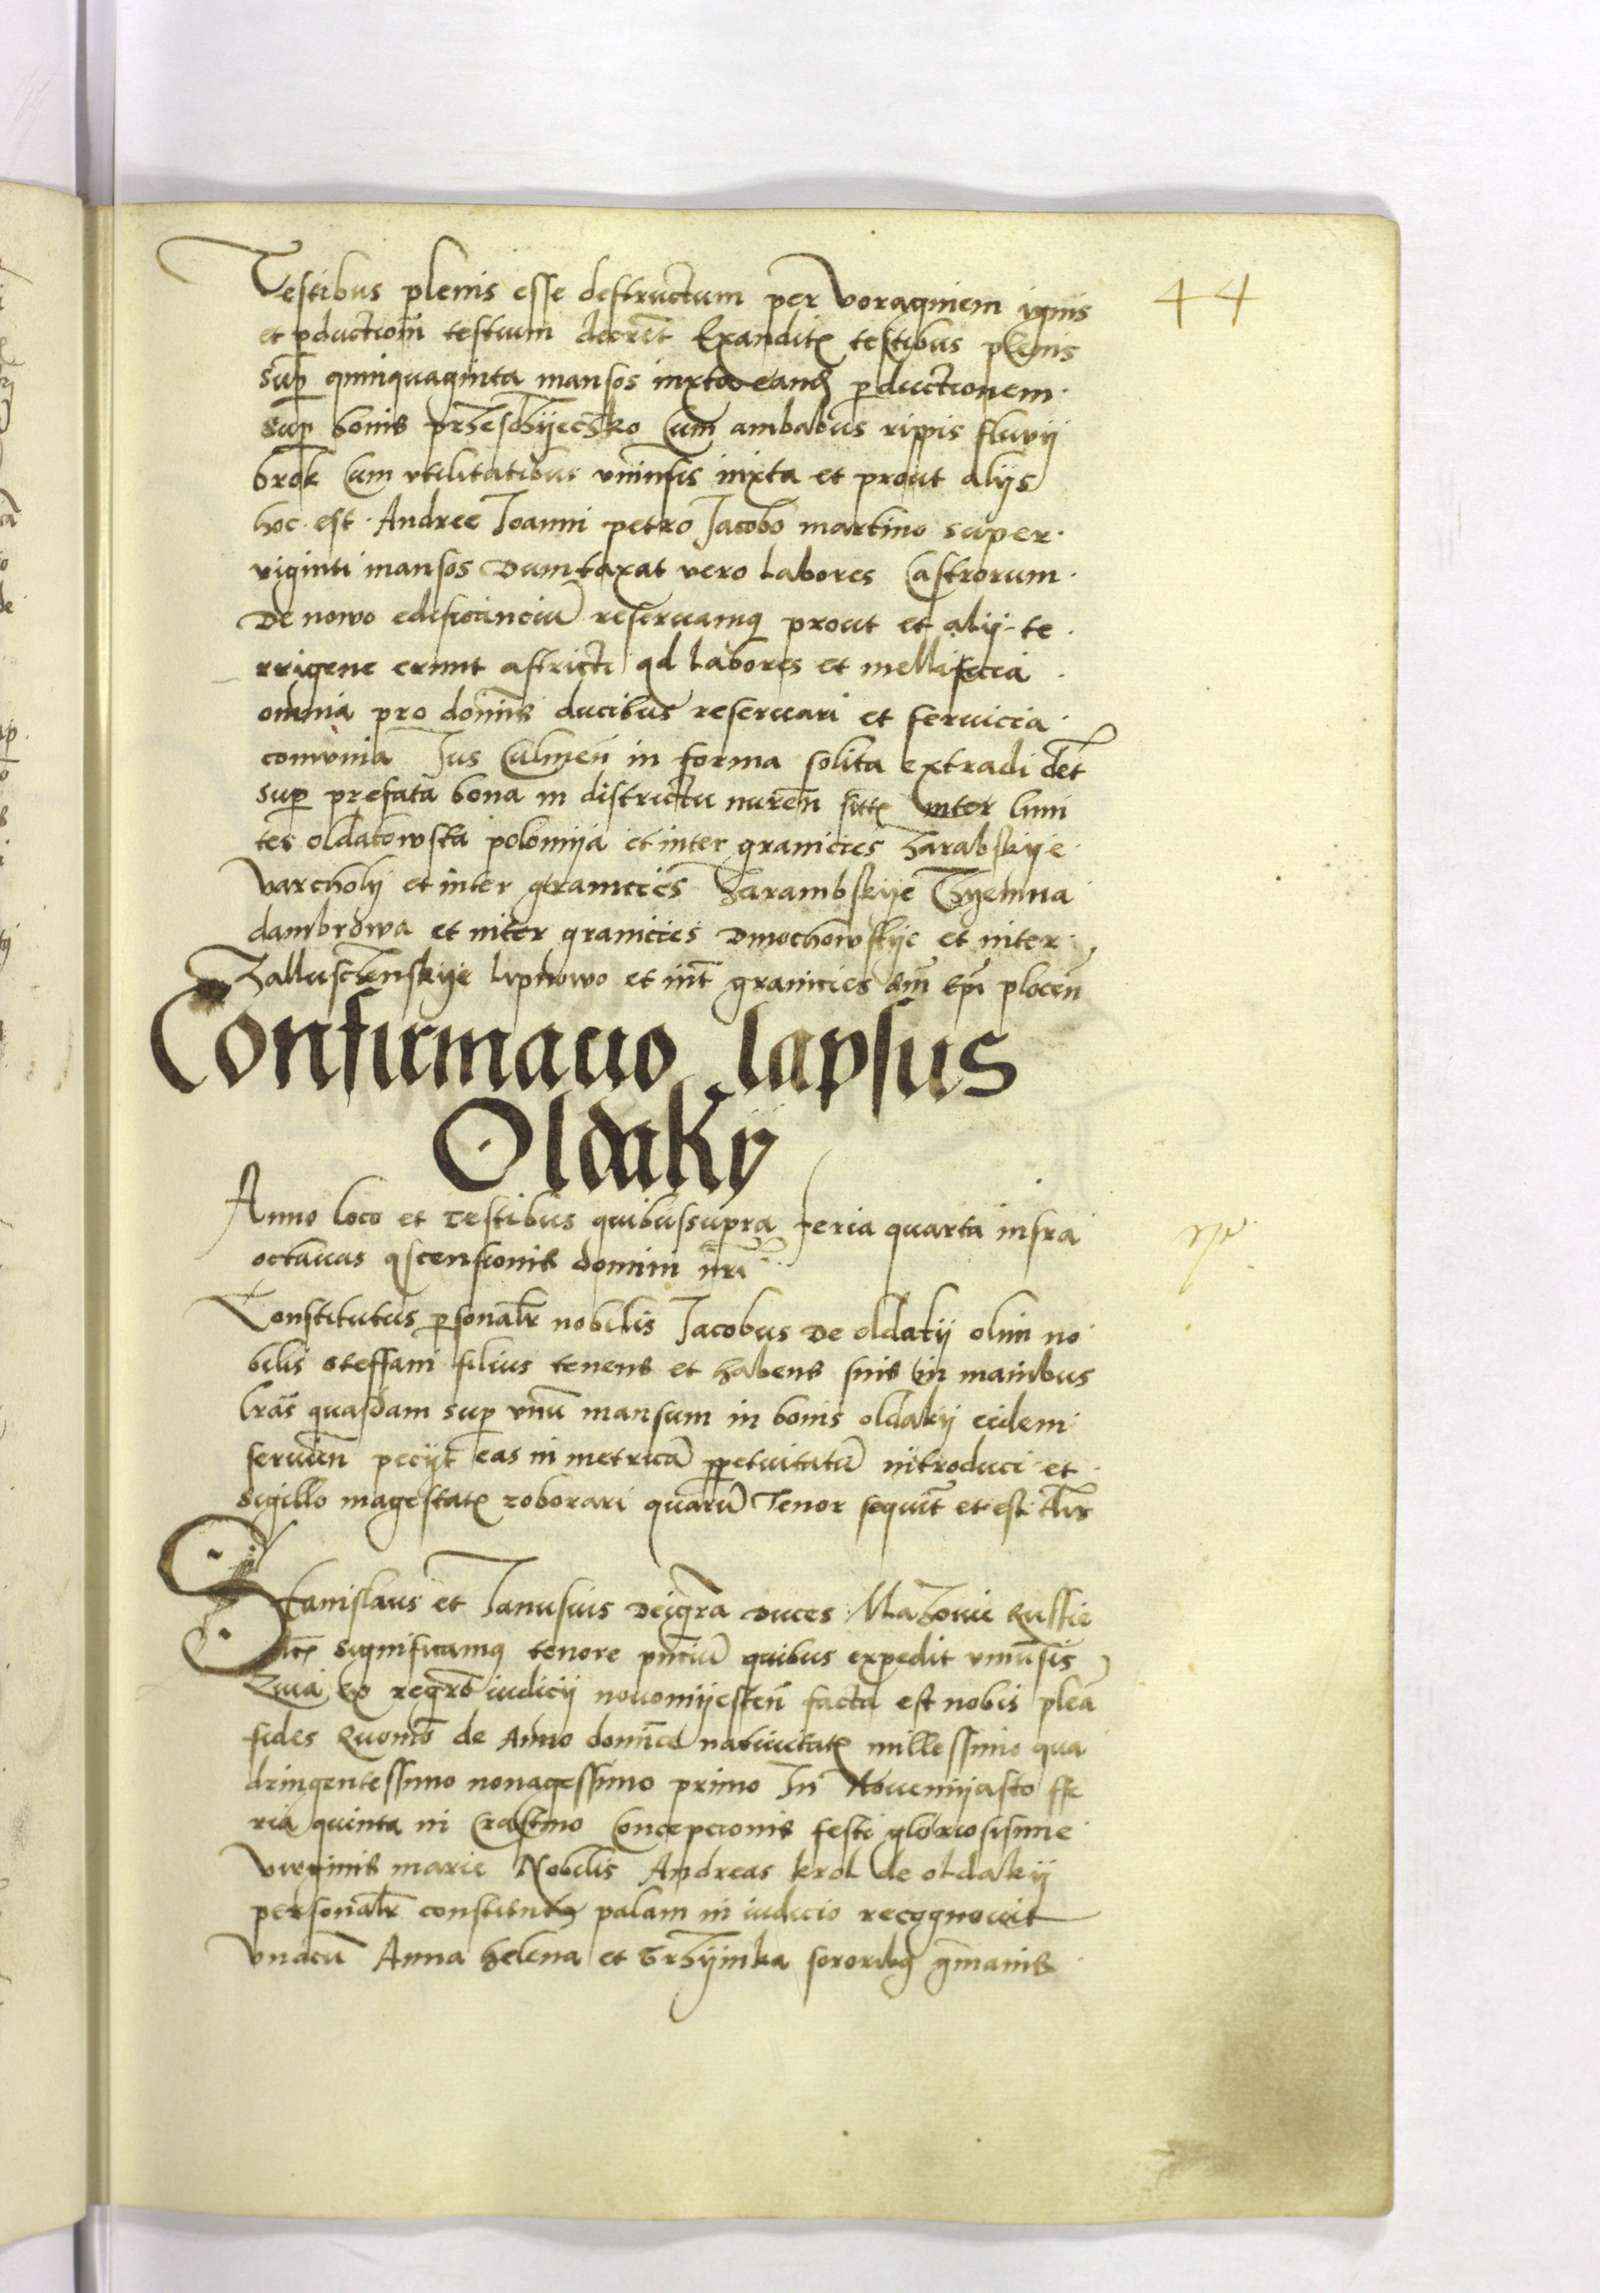 44
Testibus plenis esse destructum per voraginem ignis
et pductiom̄ testium decret̄ Exanditꝭ testibus plenis
sup̄ quinquaginta mansos iuxta eand ꝓductionem
sup̄ bonis przheschyeczko Cum ambabus rippis fluvij
brok Cum vtilitatibus vniūsis iuxta et prout alijs
hoc est Andree Joanni petro Jacobo martino super
viginti mansos Dumtaxat vero Labores Castrorum
De nowo edificanciū reseruamꝰ prout et alij te
rrigene erunt astricti ad Labores et mellificia
omnia pro dominis ducibus reseruari et seruicia
comūnia Jus Culmen̄ in forma solita extradi det̄
sup̄ prefata bona in districtu nuren̄ sittꝭ inter limi
tes oldakowska polomija et inter granicies Zarabskije
Varcholij et inter granicies Zarambskije Thyemna
dambrowa et inter granicies Dmochowskije et inter
Zalluschenskije Lipnowo et int̄ granicies dm̄ Epī plocen̄
Confirmacio lapsus
Oldakij
Anno loco et testibus quibussupra feria quarta infra
octauas ascensionis domini nr̄i
Constitutus ꝑsonalr̄ nobilis Jacobus De oldakij olim no
bilis Steffani filius tenens et habens suis in manibus
Lrās quasdam sup̄ vnū mansum in bonis oldakij eidem
seruien̄ pecijt eas in metricā ꝑpetuitatū introduci et
sigillo magestatꝭ roborari quarū Tenor sequit̄ et est tlis
Stanislaus et Janusius Deigrā Duces Mazouie Russie
etcꝭ significamꝰ tenore pn̄ciū quibus expedit vniūsis
Quia ex regrō iudicij nouomijesten̄ facta est nobis plea
fides Quomō de Anno domīce natiuitatꝭ millessimo qua
dringentessimo nonagessimo primo In Nouemijasto ffe
ria quinta in Crastino Concepcionis festi gloriosisime
Virginis marie Nobilis Andreas krol de oldakij
personalr̄ constitutꝰ palam in iudicio recognouit
vnacū Anna helena et Brzhijmka sororibꝰ gm̄anis